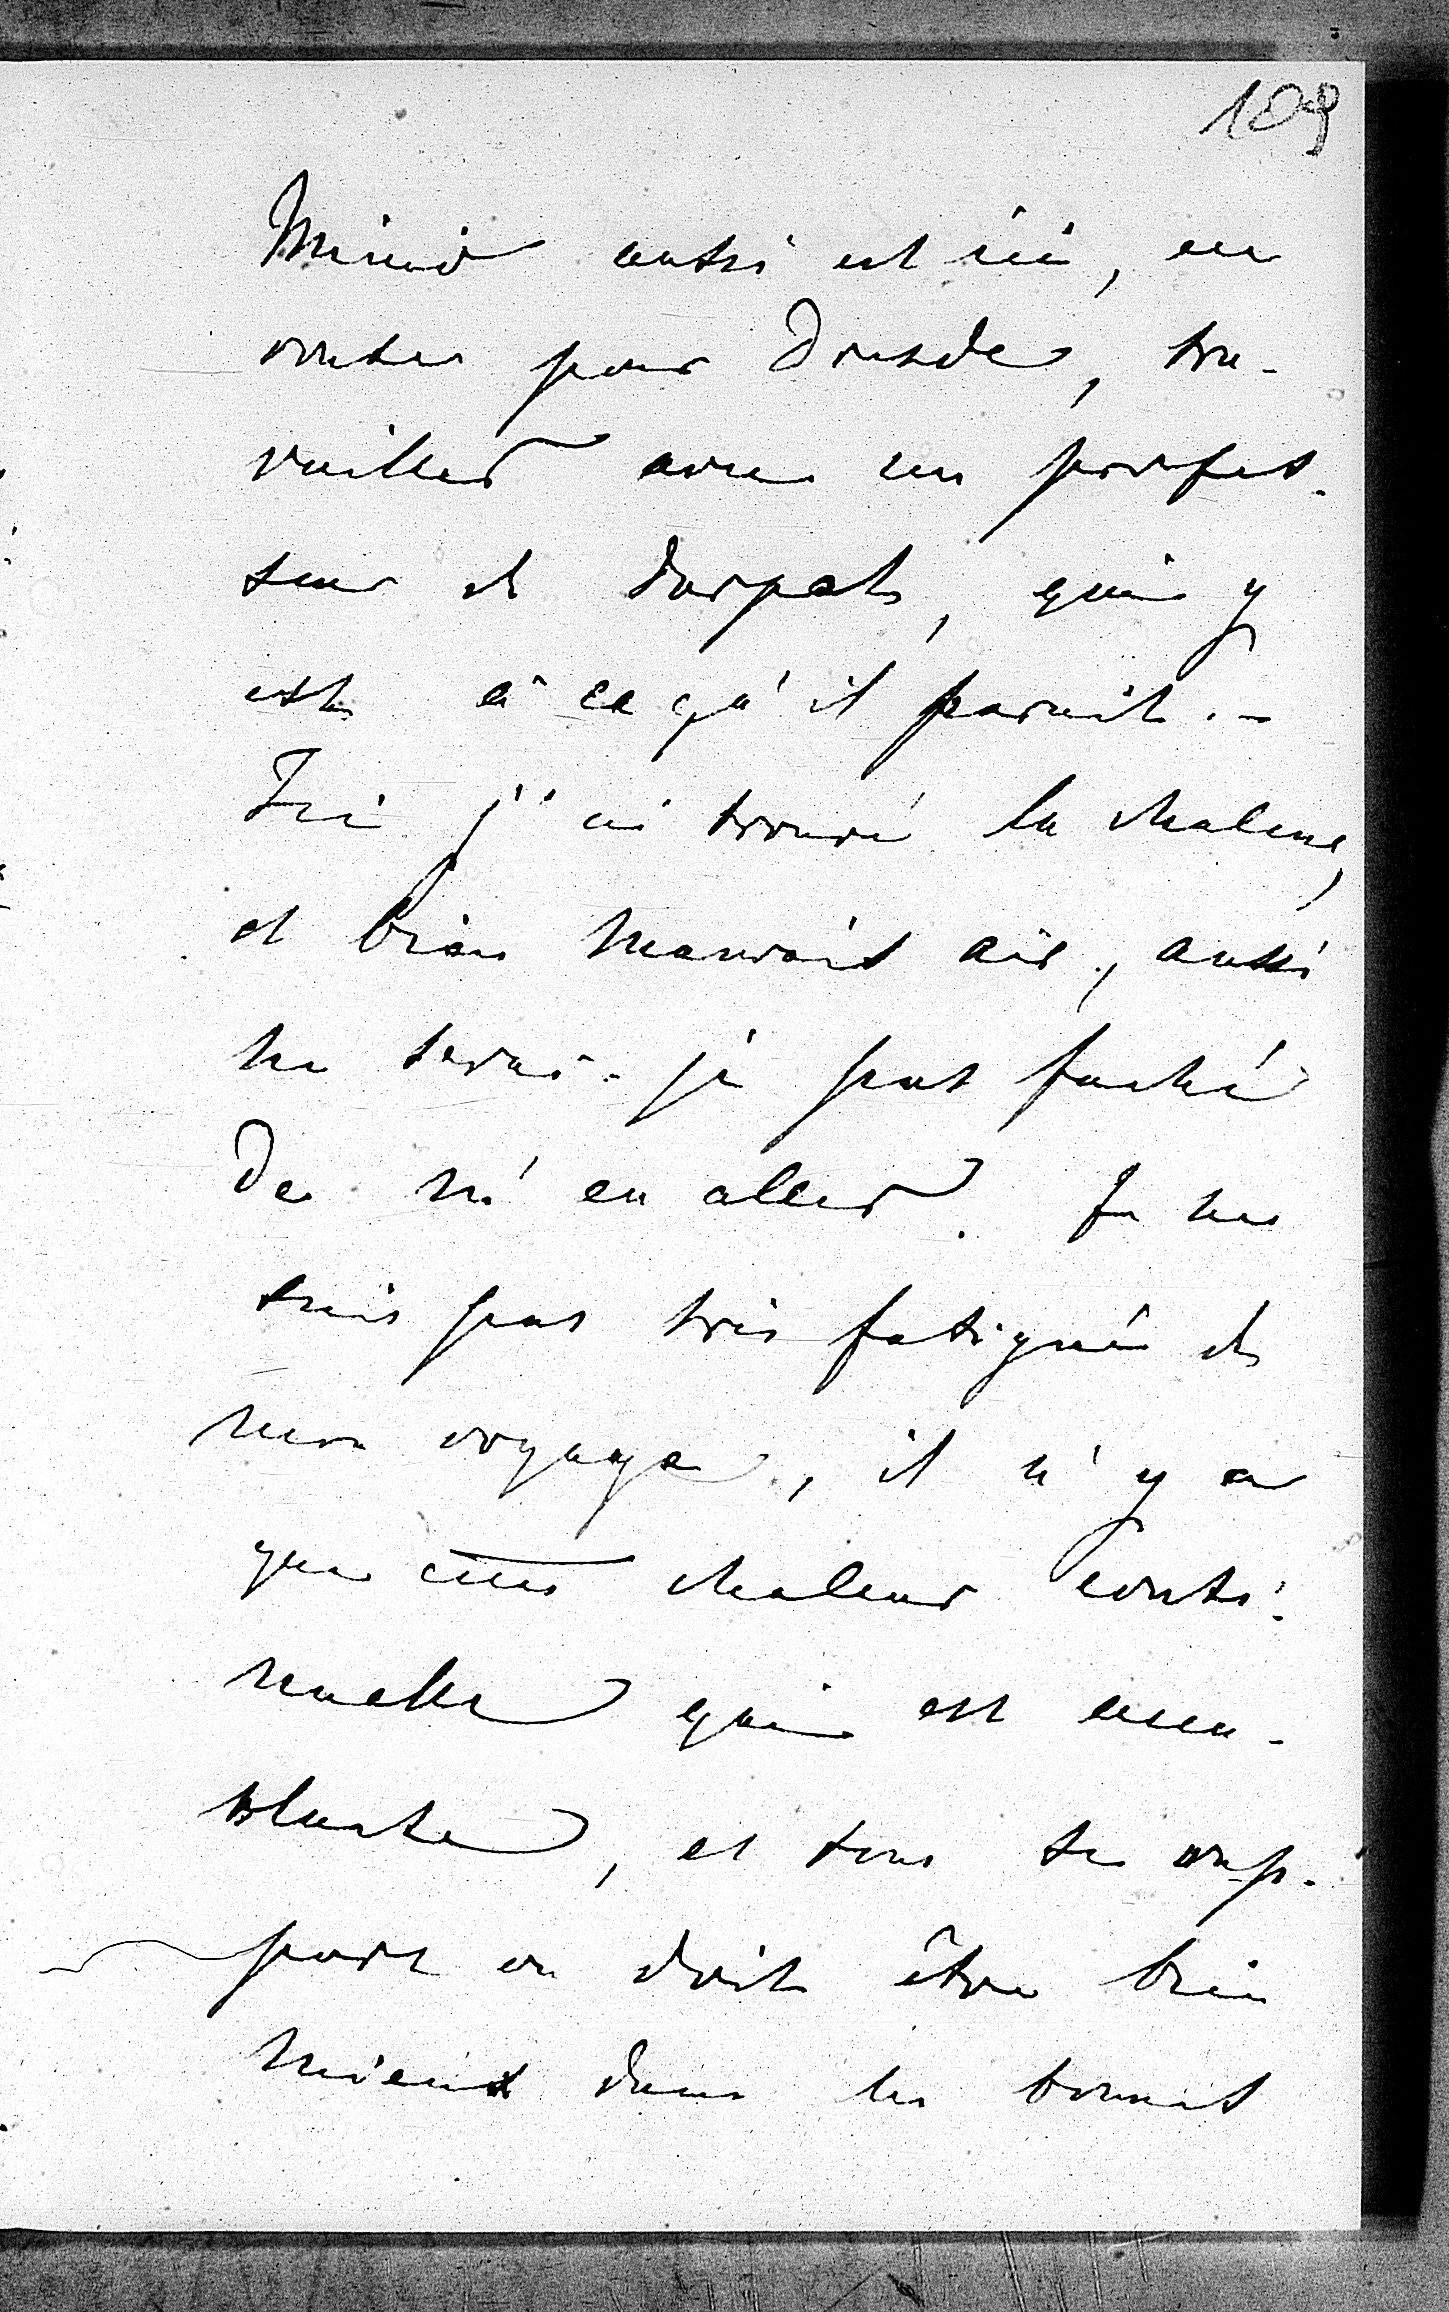 109
Minió aussi est ici, en
route pour Dresde, tra-
vailler avec un profes-
seur de Dorpat, qui y
est à ce qu'il parait. -
Ici j'ai trouvé la chaleur,
et bien mauvais air, aussi
ne serai-je pas faché
de m'en aller. Je ne
suis pas très fatigué de
mon voyage, il n'y a
que cette chaleur conti-
nuelle qui est acca-
blante, et sous ce rap-
port on doit être bien
mieux dans les